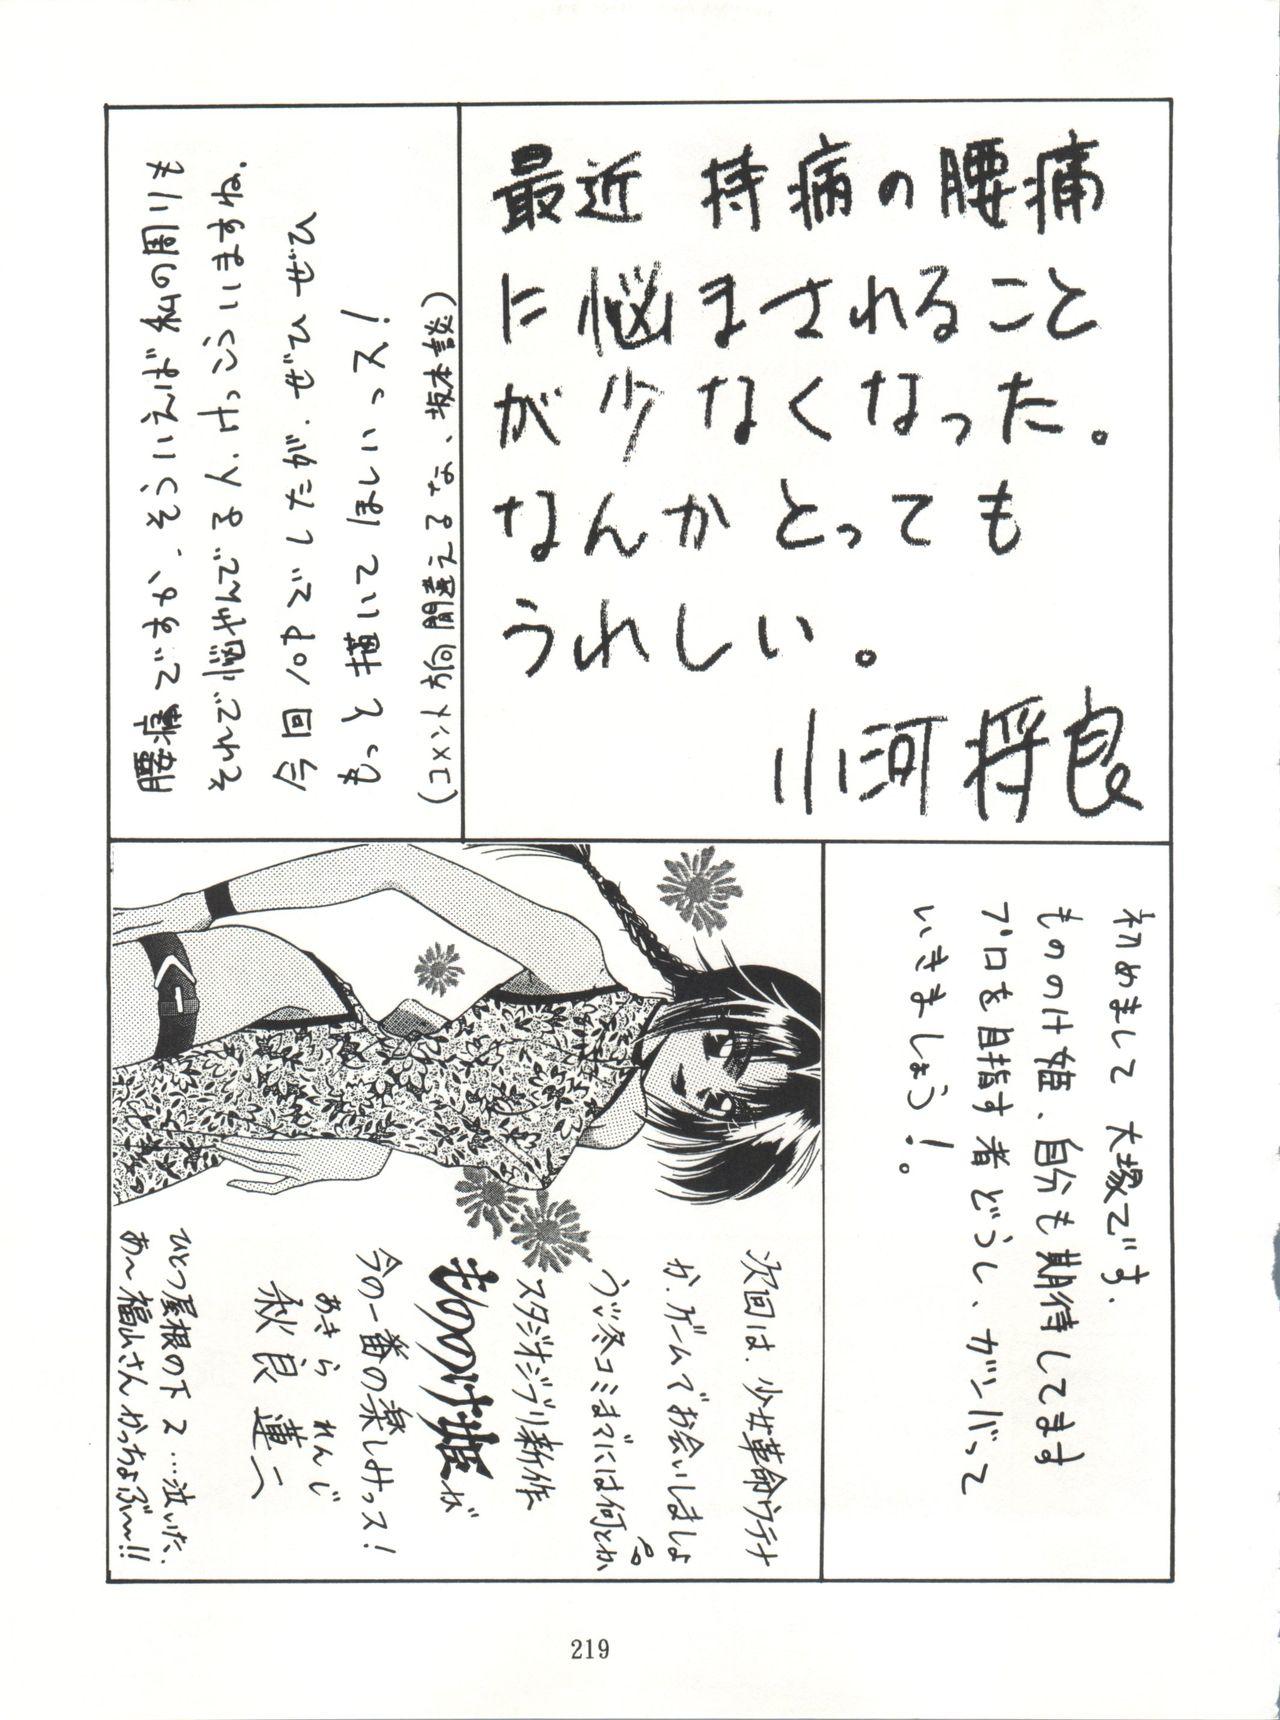 最近 持病の腰痛
に悩まされること
が少なくなった。
なんかとっても
うれしい。
小河将良
腰痛ですか、そういえば私の周りも
それで悩やんでる人、けっこういますね。
今回10Pでしたが、ぜひぜひ
もっと描いてほしいっス!
(コメント方向間違えるな、坂本談)
初めまして 大塚です.
もののけ姫、自分も期待してます
プロを目指す者どうし、ガンバって
いきましょう!。
次回は、少女革命ウテナ
か、ゲームでお会いしましょ
う
冬コミまでには何とか
スタジオジブリ新作
もののけ姫が
今の一番の楽しみっス!
あきら れんじ
秋良 蓮二
ひとつ屋根の下2…泣いた、
あ〜福山さんかっちょぶ〜!!
219